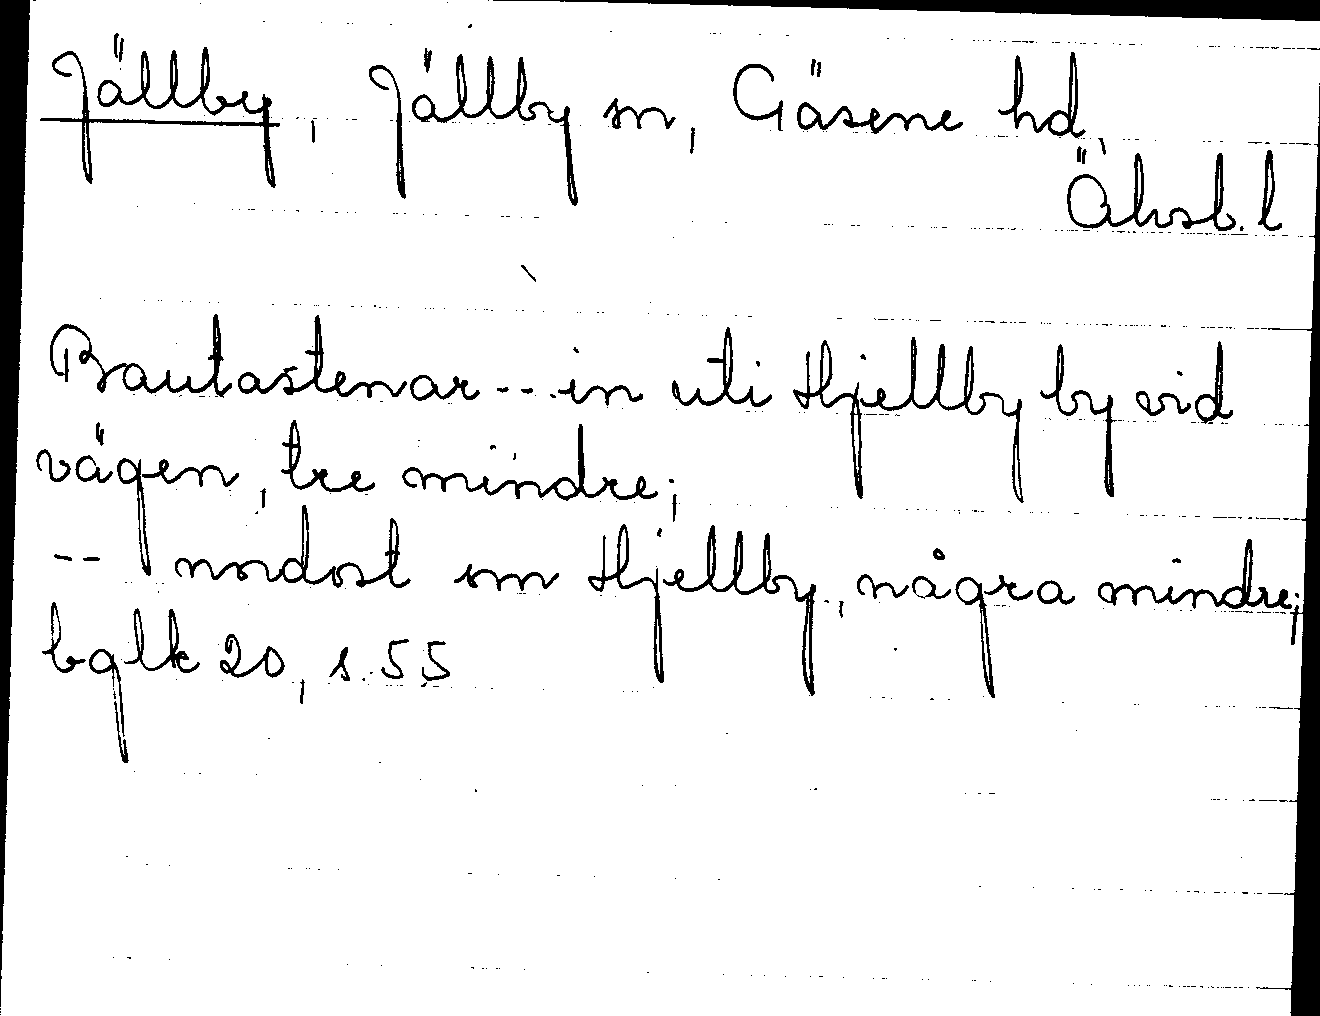 Jällby, Jällby sn, Gäsene hd,
Älvsb. l
Bautastenar -- in uti Hjellby by vid
vägen, tre mindre;
-- nordost om Hjellby, några mindre;
bglk 20, s. 55